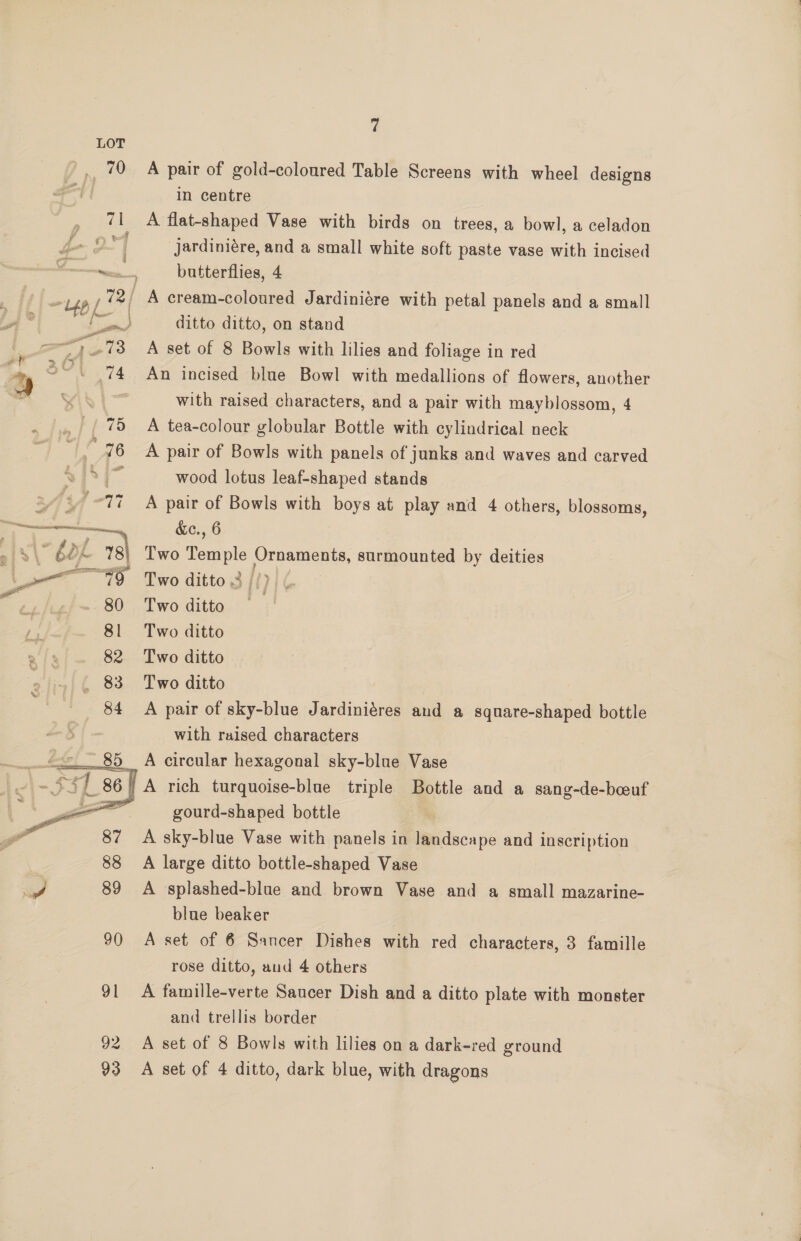 7
LOT
70 A pair of gold-coloured Table Screens with wheel designs
in centre
71 A flat-shaped Vase with birds on trees, a bowl, a celadon
jardiniére, and a small white soft paste vase with incised
butterflies, 4
72 A cream-coloured Jardiniére with petal panels and a small
ditto ditto, on stand
73 A set of 8 Bowls with lilies and foliage in red
74 An incised blue Bowl with medallions of flowers, another
with raised characters, and a pair with mayblossom, 4
75 A tea-colour globular Bottle with cylindrical neck
76 A pair of Bowls with panels of junks and waves and carved
wood lotus leaf-shaped stands
77 A pair of Bowls with boys at play and 4 others, blossoms,
&c., 6
78 Two Temple Ornaments, surmounted by deities
79 Two ditto
80 Two ditto
81 Two ditto
82 Two ditto
83 Two ditto
84 A pair of sky-blue Jardiniéres and a square-shaped bottle
with raised characters
85 A circular hexagonal sky-blue Vase
86 A rich turquoise-blue triple Bottle and a sang-de-bœuf
gourd-shaped bottle
87 A sky-blue Vase with panels in landscape and inscription
88 A large ditto bottle-shaped Vase
89 A splashed-blue and brown Vase and a small mazarine-
blue beaker
90 A set of 6 Saucer Dishes with red characters, 3 famille
rose ditto, and 4 others
91 A famille-verte Saucer Dish and a ditto plate with monster
and trellis border
92 A set of 8 Bowls with lilies on a dark-red ground
93 A set of 4 ditto, dark blue, with dragons